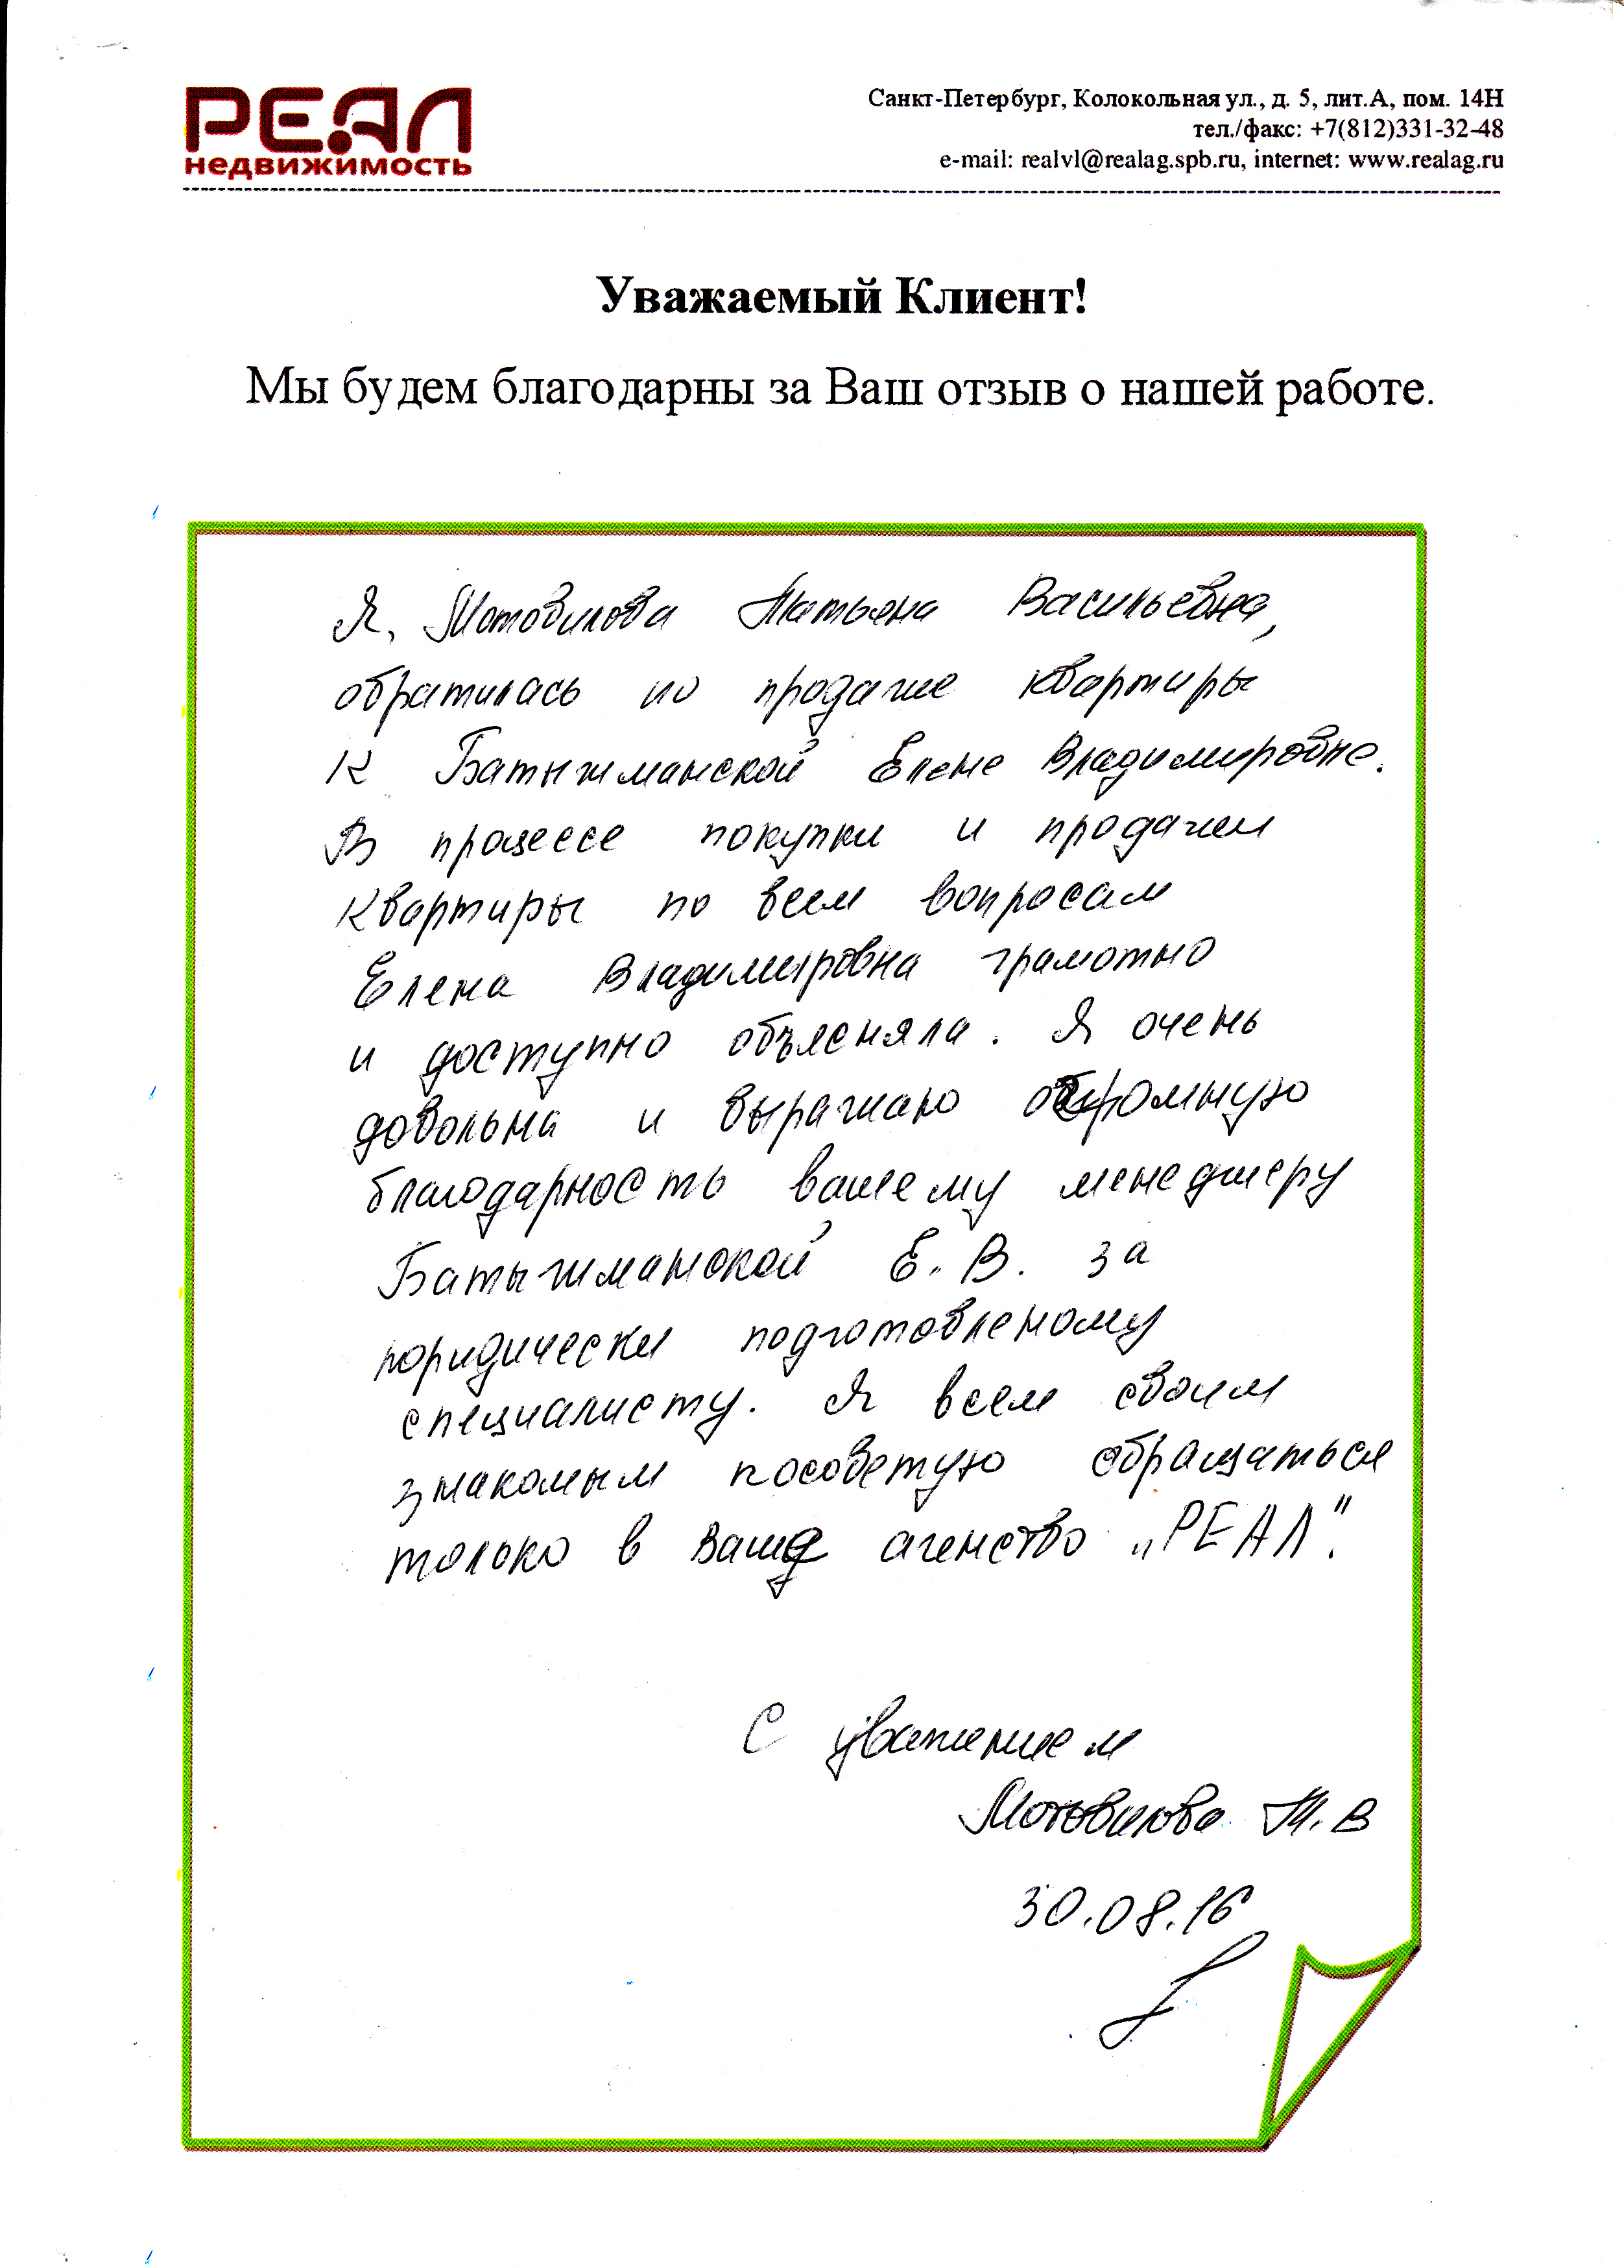 РЕАЛ
недвижимость
Санкт-Петербург, Колокольная ул., д. 5, лит.А, пом. 14Н
тел./факс: +7(812)331-32-48
e-mail: realvl@realag.spb.ru, internet: www.realag.ru
Уважаемый Клиент!
Мы будем благодарны за Ваш отзыв о нашей работе.
Я, Мотовилова Татьяна Васильевна,
обратилась по продаже квартиры
к Батыжманской Елене Владимировне.
В процессе покупки и продажи
квартиры по всем вопросам
Елена Владимировна грамотно
и доступно объясняла. Я очень
довольна и выражаю огромную
благодарность вашему менеджеру
Батыжманской Е. В. за
юридически подготовленому
специалисту. Я всем своим
знакомым посоветую обращаться
только в Ваше агенство „РЕАЛ".
С уважением
Мотовилова Т. В
30.08.16